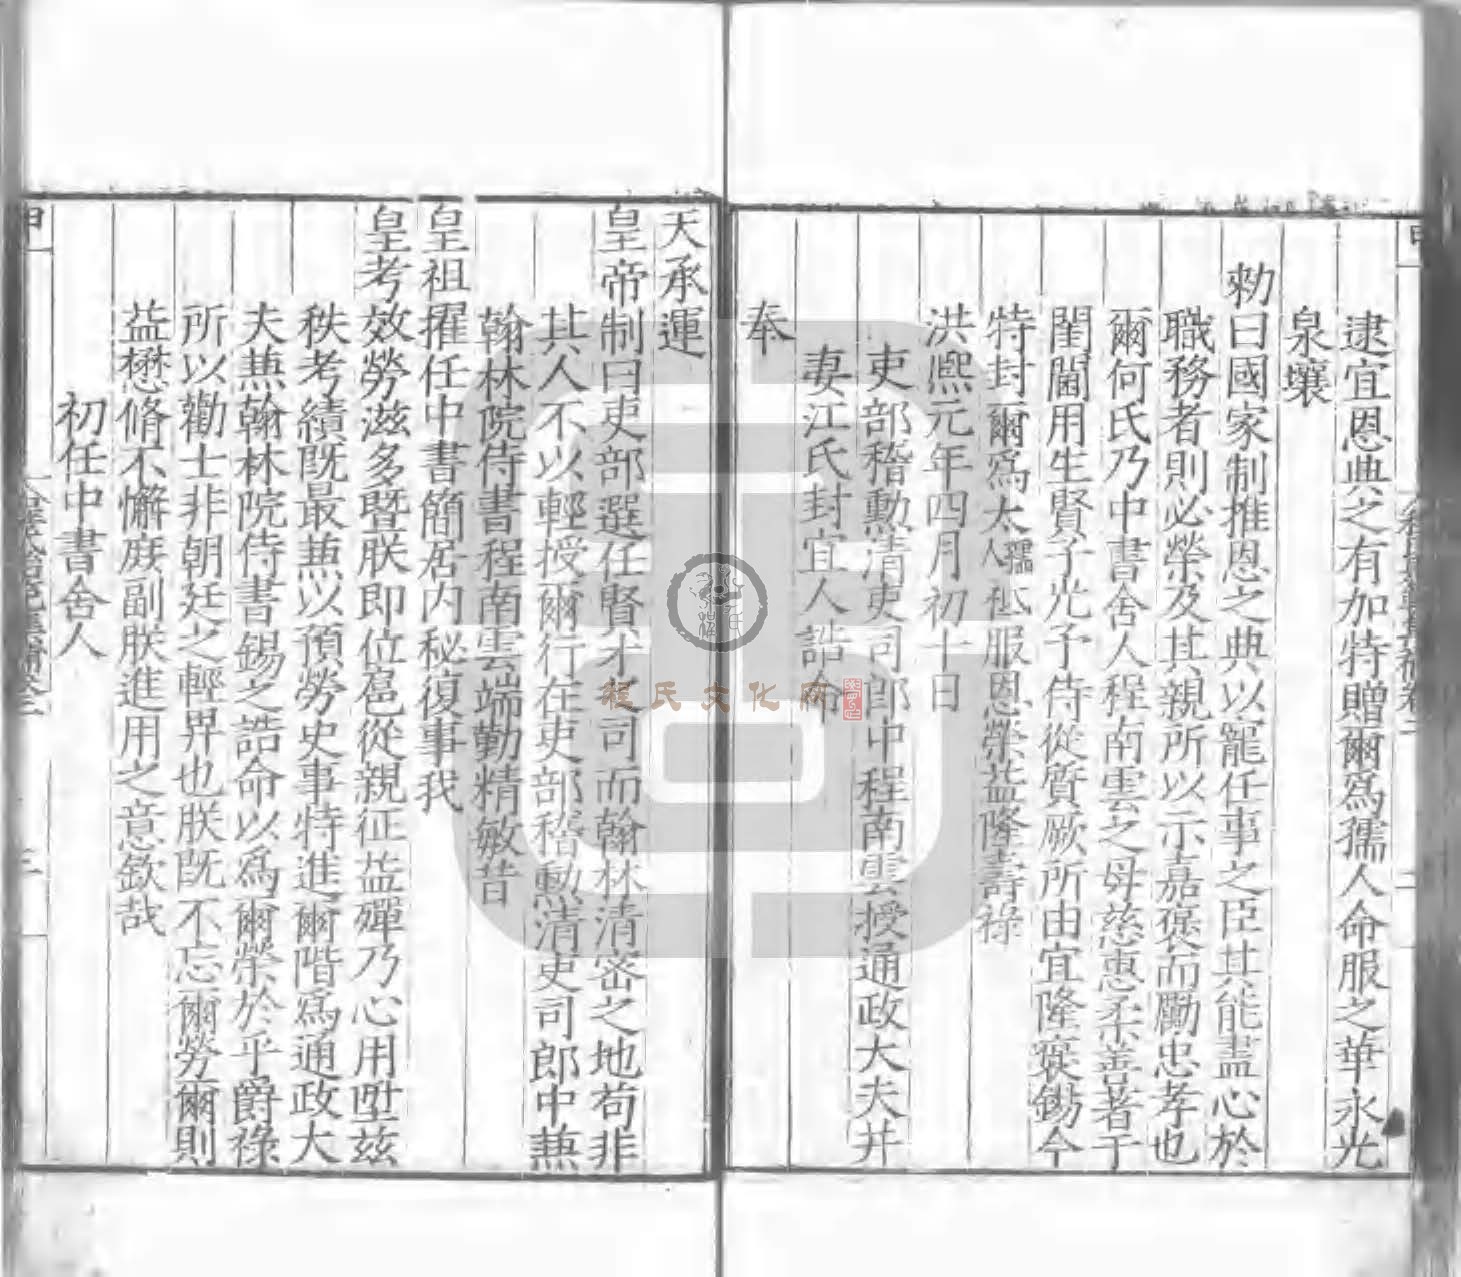 逮宜恩典之有加特贈爾爲孺人命服之華永光
泉壤
勑曰國家制推恩之典以寵任事之臣其能盡心於
職務者則必榮及其親所以示嘉褒而勵忠孝也
爾何氏乃中書舍人程南雲之母慈惠柔善著于
閨閫用生賢子光子侍從質厥所由宜隆褒錫今
特封爾爲太孺人祗服恩榮益隆壽祿
洪熈元年四月初十日
吏部稽勲清吏司郎中程南雲授通政大夫并
妻江氏封宜人誥命
奉
天承運
皇帝制曰吏部選任賢才之司而翰林清密之地苟非
其人不以輕授爾行在吏部稽勲清吏司郎中兼
翰林院侍書程南雲端勤精敏昔
皇祖擢任中書簡居内秘復事我
皇考效勞滋多暨朕即位扈從親征益殫乃心用陞兹
秩考績既最兼以預勞史事特進爾階爲通政大
夫兼翰林院侍書錫之誥命以爲爾榮於乎爵祿
所以勸士非朝廷之輕畀也朕既不忘爾勞爾則
益懋脩不懈庶副朕進用之意欽哉
初任中書舍人
程氏文化网